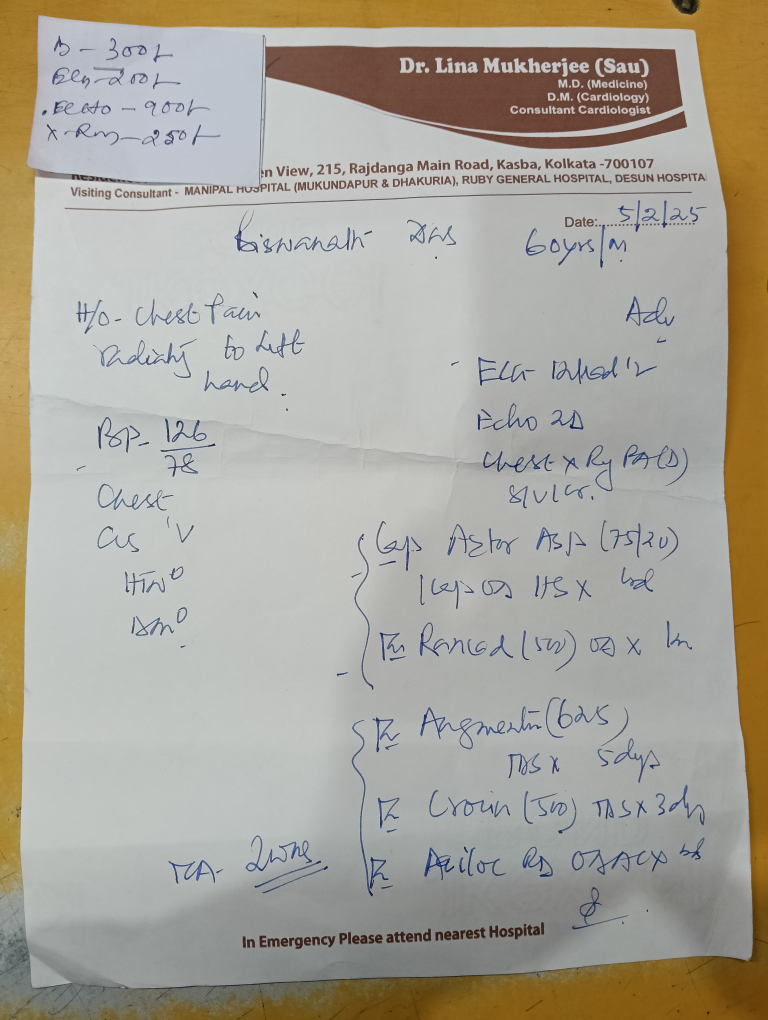 D - 300/-
ECG - 200/-
. ECHO - 900/-
X-Ray - 250/-
Dr. Lina Mukherjee (Sau)
M.D. (Medicine)
D.M. (Cardiology)
Consultant Cardiologist
en View, 215, Rajdanga Main Road, Kasba, Kolkata -700107
Visiting Consultant - MANIPAL HOSPITAL (MUKUNDAPUR & DHAKURIA), RUBY GENERAL HOSPITAL, DESUN HOSPITA
Date: 5/2/25
Biswanath Das 60yrs/M
H/O - Chest Pain
radiating to left
hand.
BP - 126/78
Chest
CVS
HTN°
DM°
Adv
ECG
Echo 2D
Chest X Ray PA(D)
S/U/Cr.
Cap Aztor Asp (75/20)
1 cap OD HS X
Rancad (500) OD X
Augmentin (625)
TDS X 5days
Crocin (500) TDS X 3days
RD OD AC X
2wks
In Emergency Please attend nearest Hospital